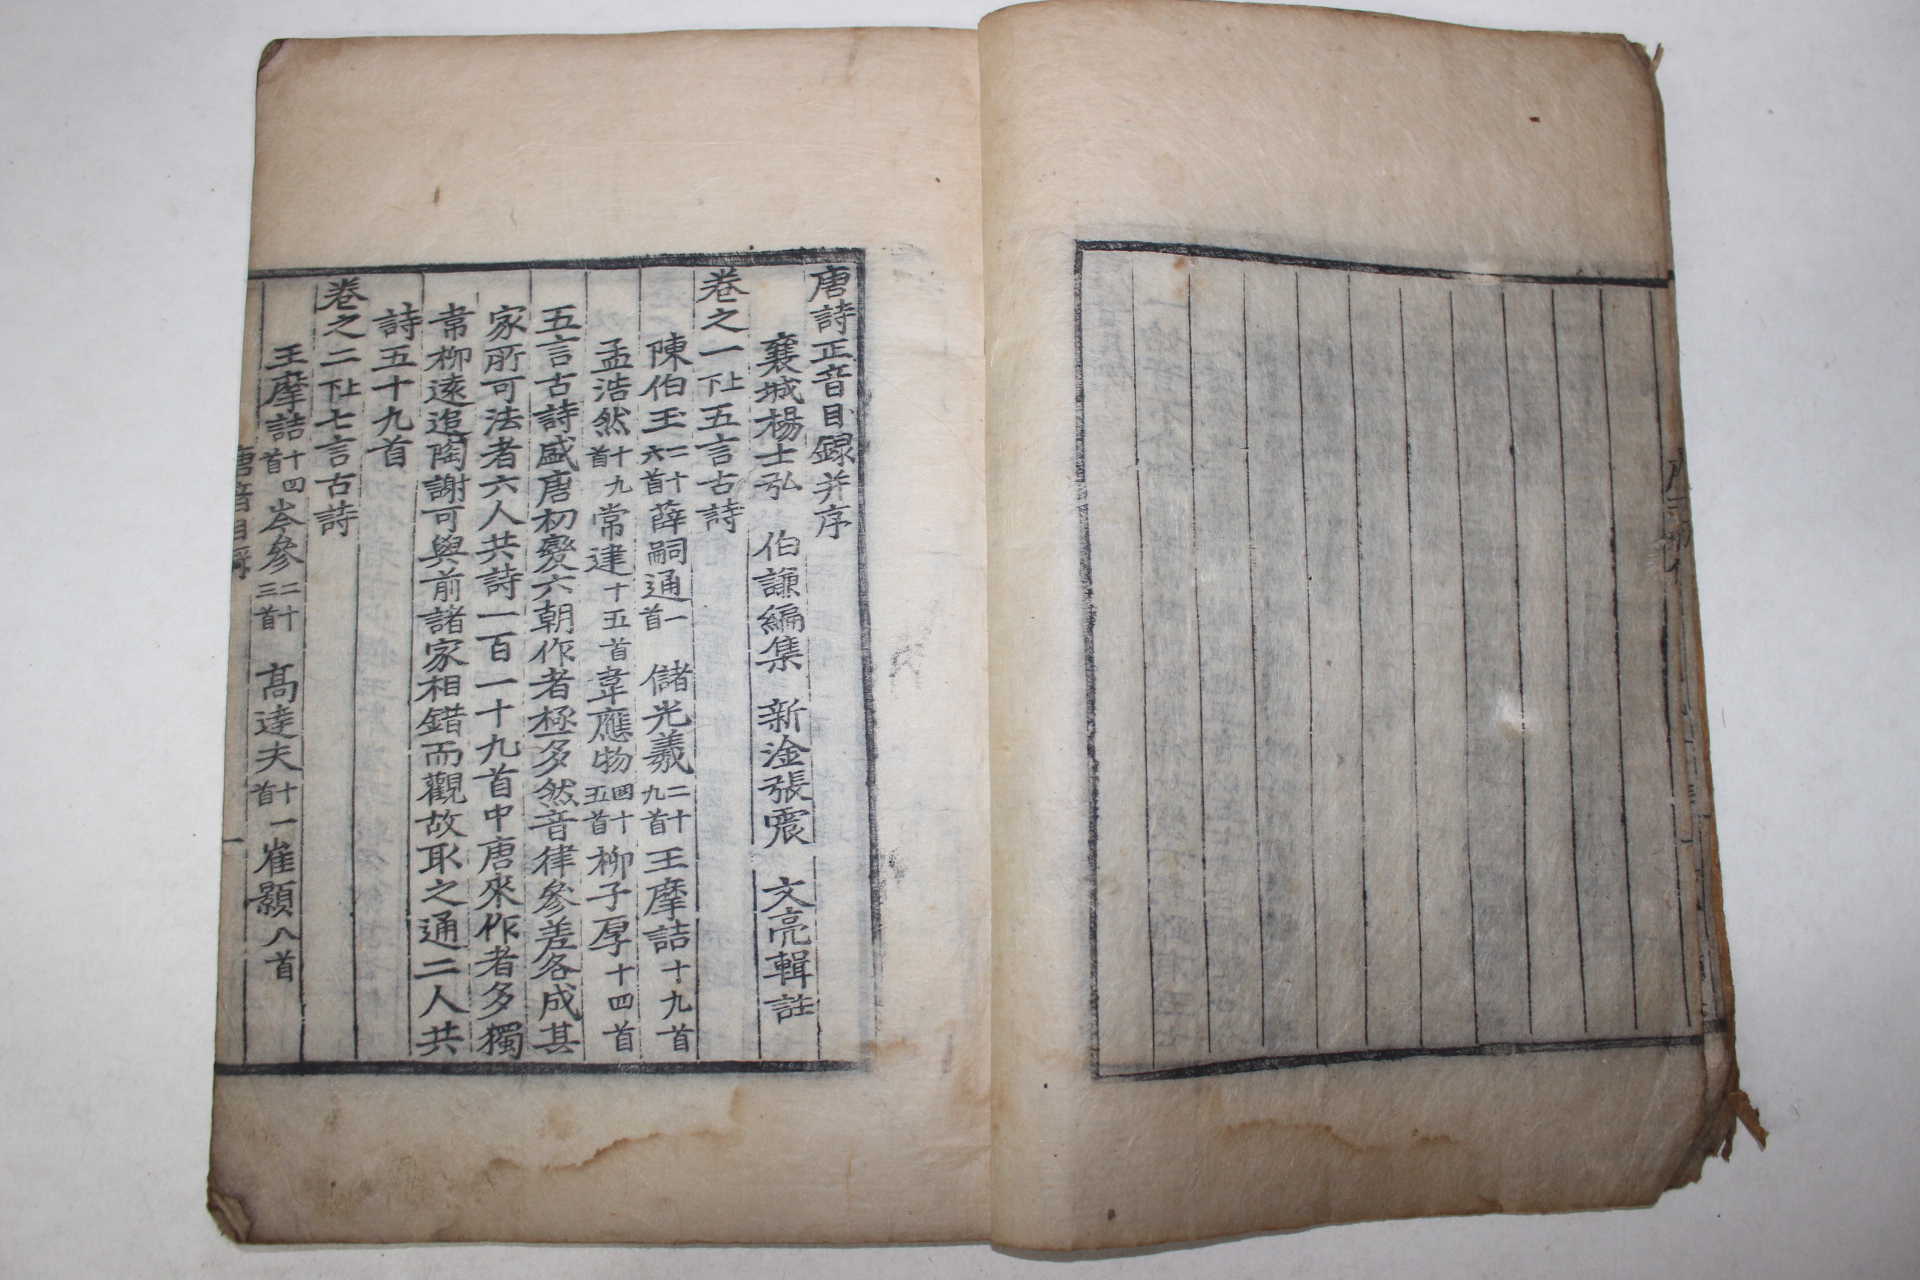 唐詩正音目録并序
襄城楊士弘 伯謙編集 新淦張震 文亮輯註
卷之一上下五言古詩
陳伯玉二十六首薛嗣通一首 儲光羲二十九首王摩詰十九首
孟浩然十九首常建十五首韋應物四十五首柳子厚十四首
五言古詩盛唐初變六朝作者極多然音律參差各成其
家所可法者六人共詩一百一十九首中唐來作者多獨
韋柳遠追陶謝可與前諸家相錯而觀故取之通二人共
詩五十九首
卷之二上下七言古詩
王摩詰十四首岑參二十三首 高達夫十一首崔顥八首
唐音目録
一